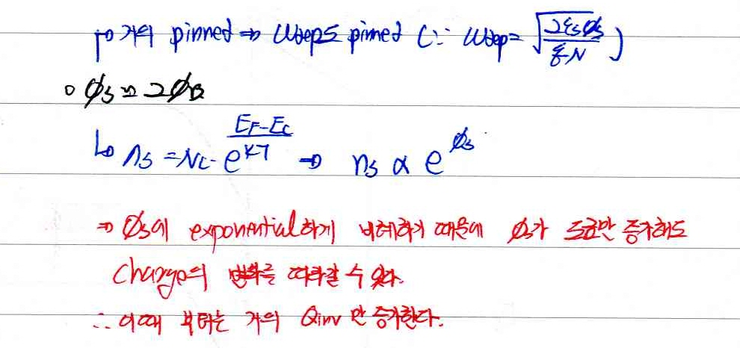 ↳ 거의 pinned ⇒ Wdep도 pinned (∵ Wdep = √(2εsφs / qN) )
○ φs ≈ 2φB
↳ ns = Nc · e^((EF-Ec)/KT) ⇒ ns ∝ e^φs
⇒ φs에 exponential하게 비례하기 때문에 φs가 조금만 증가해도
charge의 변화를 따라갈 수 있다.
∴ 이때 부터는 거의 Qinv 만 증가한다.